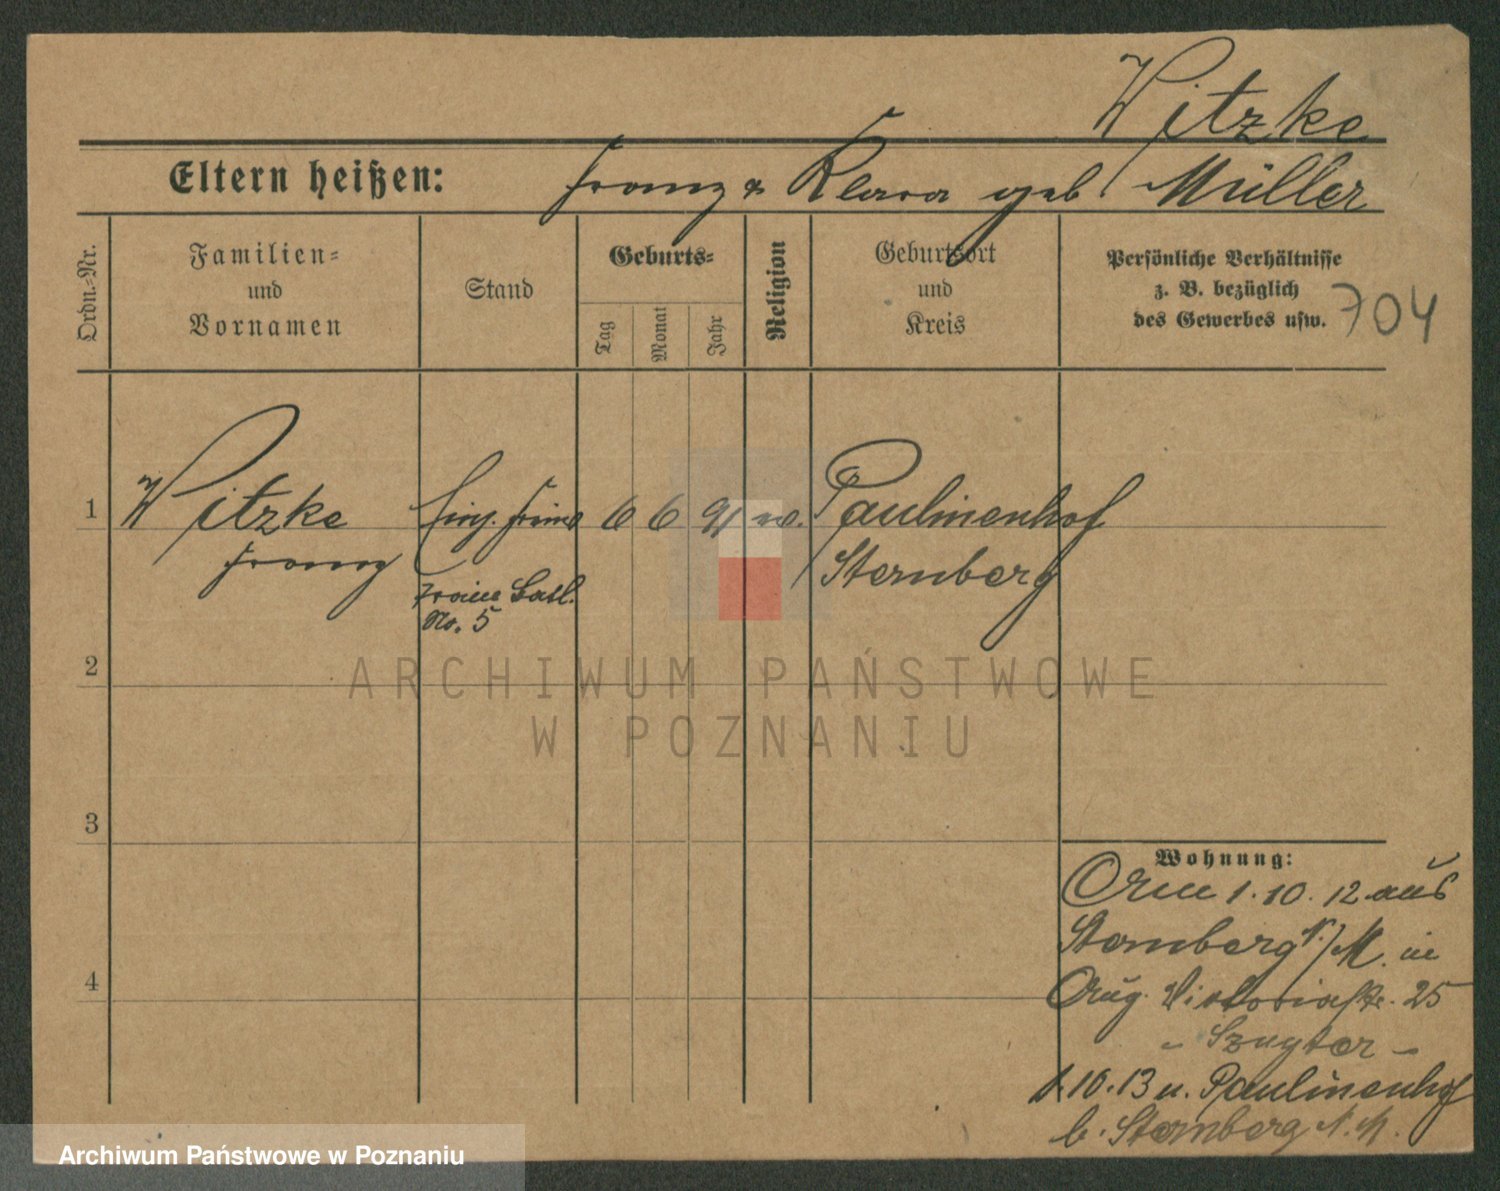 Witzke
Eltern heißen: Franz & Klara geb Müller
Ordn.-Nr. Familien- und Vornamen Stand Geburts- Tag Monat Jahr Religion Geburtsort und Kreis Persönliche Verhältnisse z. B. bezüglich des Gewerbes usw. 704
1 Witzke Einj. Freiw 6 6 91 Paulinenhof
Franz Sternberg
Train Batl.
No. 5
2
ARCHIWUM PAŃSTWOWE
W POZNANIU
3
Wohnung:
1.10.12 aus
Sternberg N./M. in
4
Aug. Victoriastr. 25
1.10.13 n. Paulinenhof
b. Sternberg N.M.
Archiwum Państwowe w Poznaniu